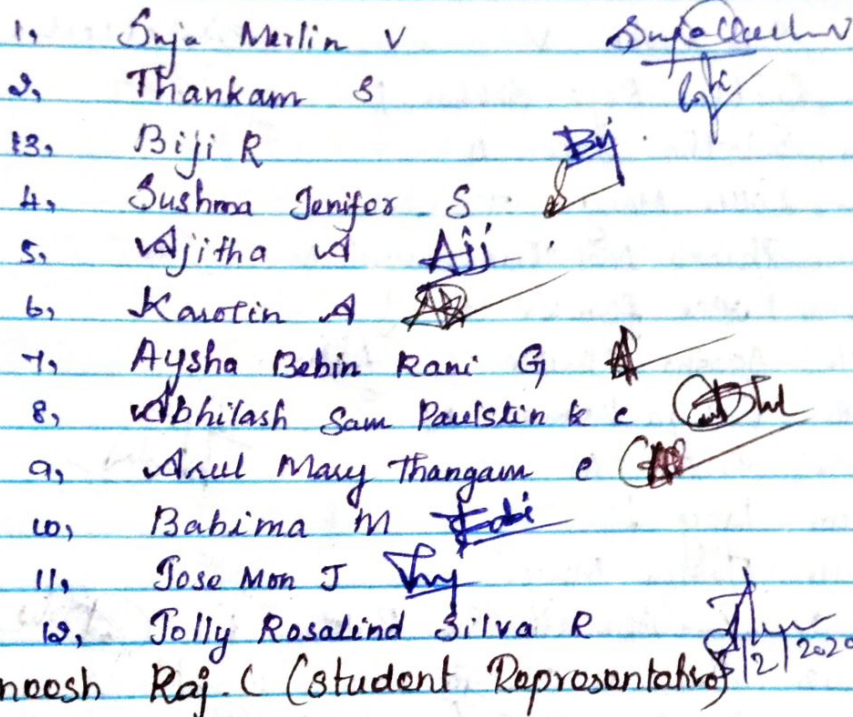 1, Suja Merlin V
2, Thankam S
3, Biji R Bij
4, Sushma Jenifer S
5, Ajitha A Aji
6, Karolin A
7, Aysha Bebin Rani G
8, Abhilash Sam Paulstin k c
9, Arul Mary Thangam c
10, Babima M
11, Jose Mon J
12, Jolly Rosalind Silva R
noosh Raj. C (student Representative) /2/2020